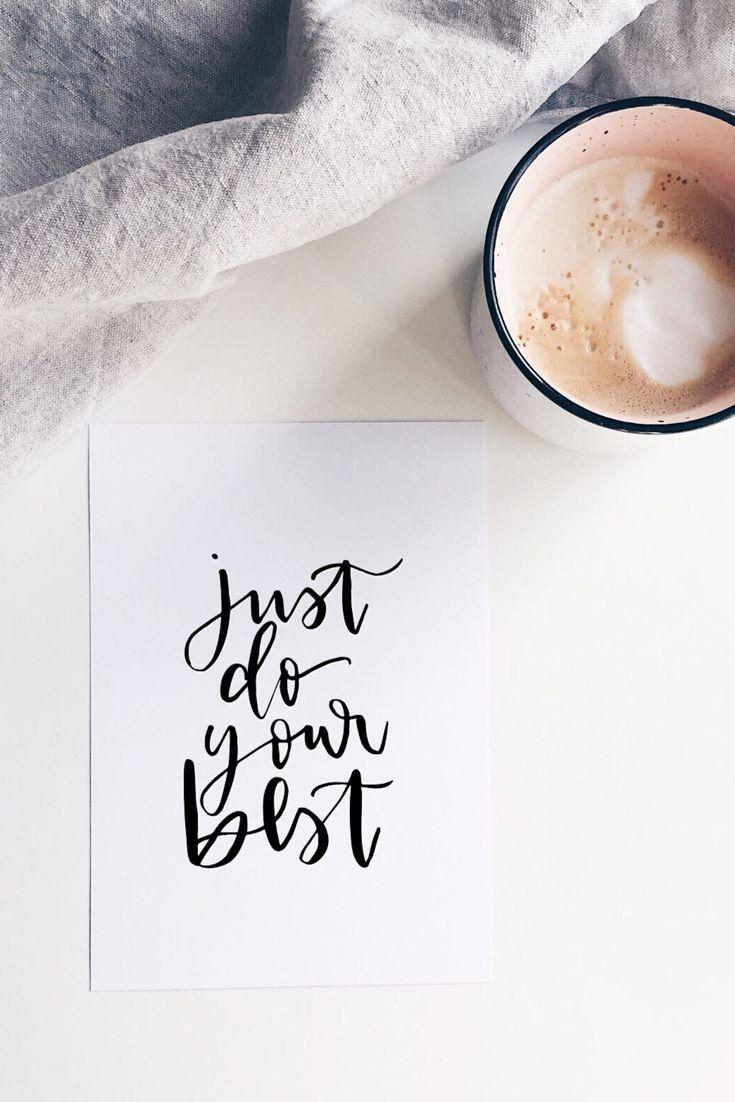 just
do
your
best